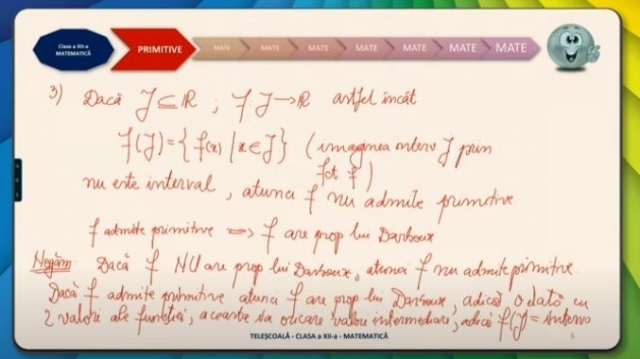 Clasa a XII-a
MATEMATICĂ
PRIMITIVE
MATE MATE MATE MATE MATE MATE MATE
3) Dacă J ⊆ ℝ ; f: J → ℝ astfel încât
f(J) = { f(x) | x ∈ J } (imaginea interv J prin
fct f)
nu este interval, atunci f nu admite primitive
f admite primitive ⟹ f are prop lui Darboux
Negăm: Dacă f NU are prop lui Darboux, atunci f nu admite primitive.
Dacă f admite primitive atunci f are prop lui Darboux, adică odată cu
2 valori ale funcției, aceasta va valori intermediare, adică f(J) = interv
TELEȘCOALĂ - CLASA a XII-a - MATEMATICĂ
5